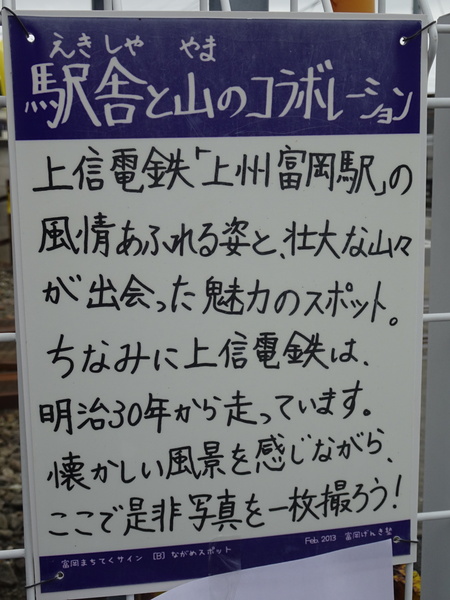 えきしゃ やま
駅舎と山のコラボレーション
上信電鉄「上州富岡駅」の
風情あふれる姿と、壮大な山々
が出会った魅力のスポット。
ちなみに上信電鉄は、
明治30年から走っています。
懐かしい風景を感じながら、
ここで是非写真を一枚撮ろう!
富岡まちてくサイン [B] ながめスポット Feb. 2013 富岡げんき塾